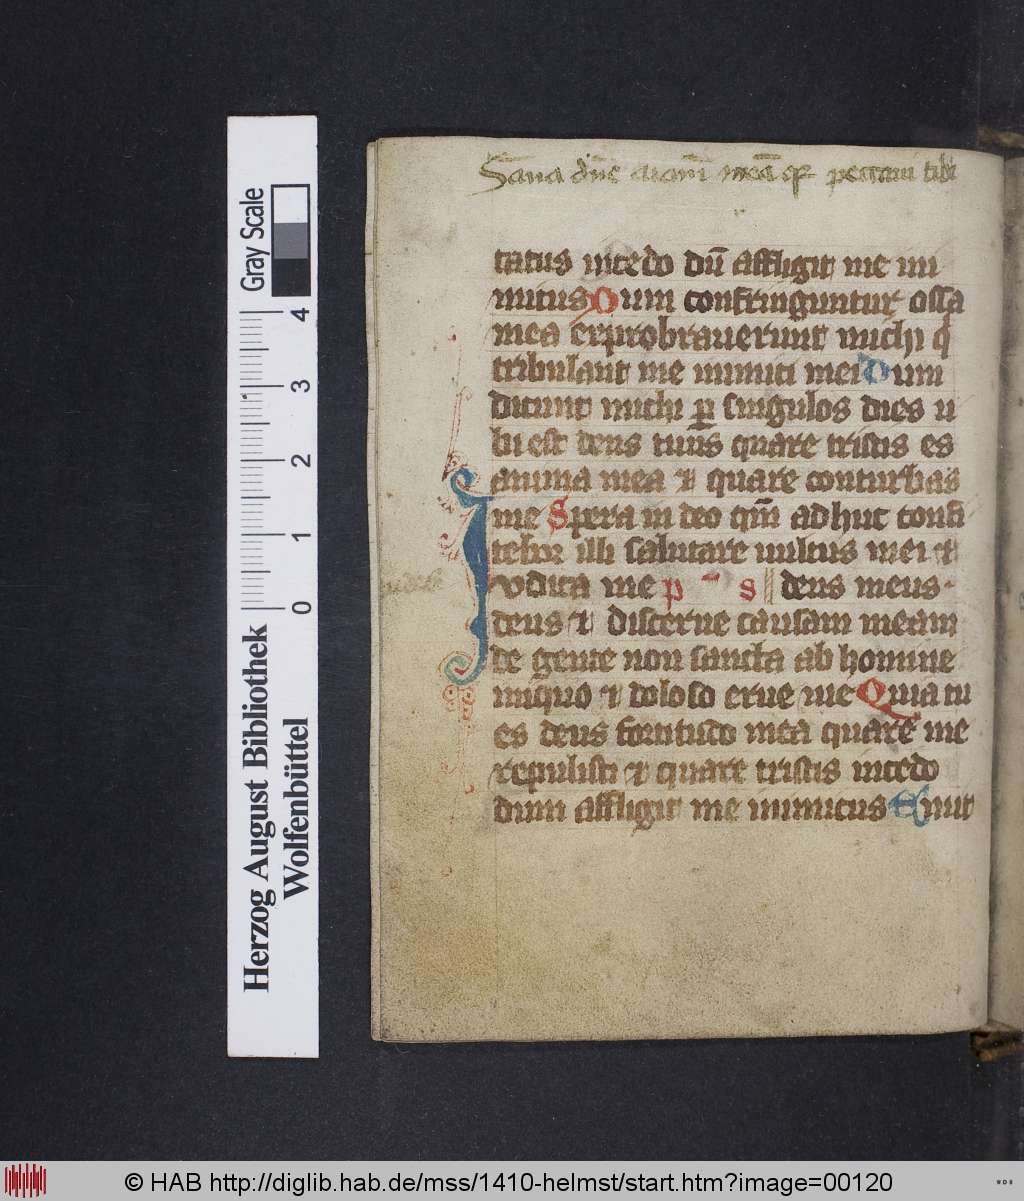 Sana dn̄e aīam̄ meā qꝛ peccaui tibi
tatus incedo dū affligit me ini
micus Dum confringuntur ossa
mea exprobrauerunt michi q̇
tribulant me inimici mei Dum
dicunt michi ꝑ singulos dies u
bi est deus tuus quare tristis es
anima mea ⁊ quare conturbas
me Spera in deo qm̄ adhuc confi
tebor illi salutare uultus mei ⁊
Iudica me p s deus meus
deus ⁊ discerne causam meam
de gente non sancta ab homine
iniquo ⁊ doloso erue me Quia tu
es deus fortitudo mea quare me
repulisti ⁊ quare tristis incedo
dum affligit me inimicus Emit
Gray Scale
4
3
2
1
0
Herzog August Bibliothek
Wolfenbüttel
© HAB http://diglib.hab.de/mss/1410-helmst/start.htm?image=00120